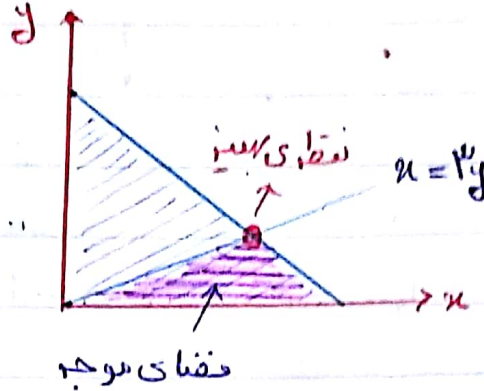 y
نقطه‌ی بهینه
x = ۳y
x
فضای موجه